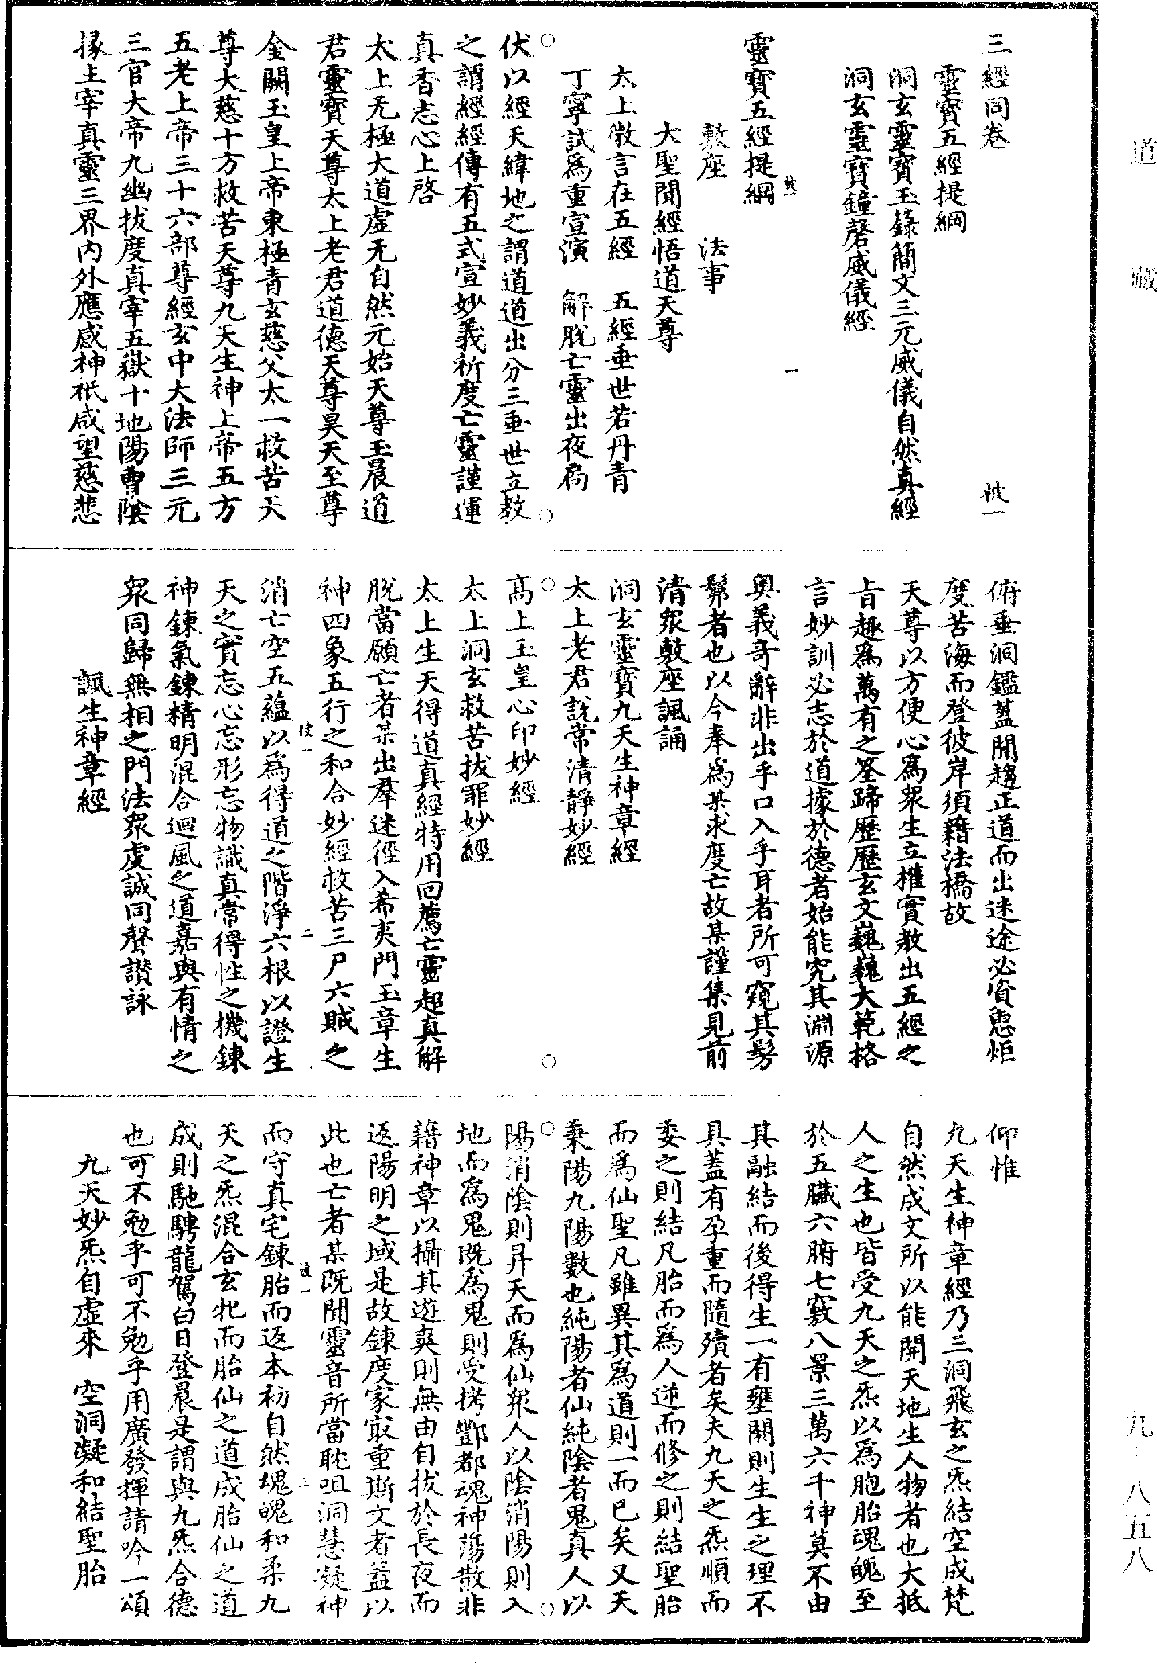 道藏
三經同卷 被一
靈寶五經提綱
洞玄靈寶玉籙簡文三元威儀自然真經
洞玄靈寶鐘磬威儀經
被一 一
靈寶五經提綱
敷座 法事
大聖聞經悟道天尊
太上微言在五經 五經垂世若丹青
丁寧試爲重宣演 解脫亡靈出夜扃
伏以經天緯地之謂道道出分三垂世立教
之謂經經傳有五式宣妙義祈度亡靈謹運
真香志心上啓
太上无極大道虛无自然元始天尊玉晨道
君靈寶天尊太上老君道德天尊昊天至尊
金闕玉皇上帝東極青玄慈父太一救苦天
尊大慈十方救苦天尊九天生神上帝五方
五老上帝三十六部尊經玄中大法師三元
三官大帝九幽拔度真宰五嶽十地陽曹陰
掾主宰真靈三界內外應感神祇咸望慈悲
俯垂洞鑑蓋聞趨正道而出迷途必資惠炬
度苦海而登彼岸須藉法橋故
天尊以方便心爲眾生立權實教出五經之
旨趣爲萬有之筌蹄歷歷玄文巍巍大範格
言妙訓必志於道據於德者始能究其淵源
奧義奇辭非出乎口入乎耳者所可窺其髣
髴者也以今奉爲某求度亡故某謹集見前
清眾敷座諷誦
洞玄靈寶九天生神章經
太上老君說常清靜妙經
高上玉皇心印妙經
太上洞玄救苦拔罪妙經
太上生天得道真經特用回薦亡靈超真解
脫當願亡者某出羣迷徑入希夷門玉章生
神四象五行之和合妙經救苦三尸六賊之
被一 二
消亡空五蘊以爲得道之階淨六根以證生
天之實忘心忘形忘物識真常得性之機鍊
神鍊氣鍊精明混合迴風之道嘉與有情之
眾同歸無相之門法眾虔誠同聲讚詠
諷生神章經
仰惟
九天生神章經乃三洞飛玄之炁結空成梵
自然成文所以能開天地生人物者也大抵
人之生也皆受九天之炁以爲胞胎魂魄至
於五臟六腑七竅八景三萬六千神莫不由
其融結而後得生一有壅關則生生之理不
具蓋有孕重而隨殰者矣夫九天之炁順而
委之則結凡胎而爲人逆而修之則結聖胎
而爲仙聖凡雖異其爲道則一而已矣又天
秉陽九陽數也純陽者仙純陰者鬼真人以
陽消陰則昇天而爲仙眾人以陰消陽則入
地而爲鬼既爲鬼則受拷酆都魂神蕩散非
藉神章以攝其遊爽則無由自拔於長夜而
返陽明之域是故鍊度家㝡重斯文者蓋以
此也亡者某既聞靈音所當耽咀洞慧凝神
被一 三
而守真宅鍊胎而返本初自然塊魄和柔九
天之炁混合玄牝而胎仙之道成胎仙之道
成則馳騁龍駕白日登晨是謂與九炁合德
也可不勉乎可不勉乎用廣發揮請吟一頌
九天妙炁自虛來 空洞凝和結聖胎
九 八五八